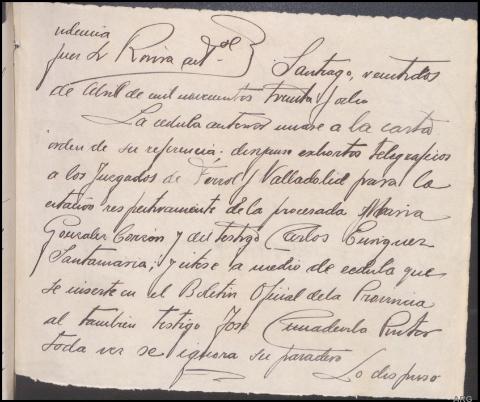 udencia
juez Sr Rovira
Santiago, veintidos
de Abril de mil novecientos treinta y
La cedula anterior unase a la carta
orden de su referencia. dispuso exhortos telegraficos
a los Juzgados de Ferrol y Valladolid para la
citacion respectivamente de la procesada Maria
Gonzalez y del testigo Carlos Enriquez
Santamaria; y citese por medio de cedula que
se inserte en el Boletin Oficial de la Provincia
al tambien testigo José Pintor
toda vez se ignora su paradero
Lo dispuso
ARG